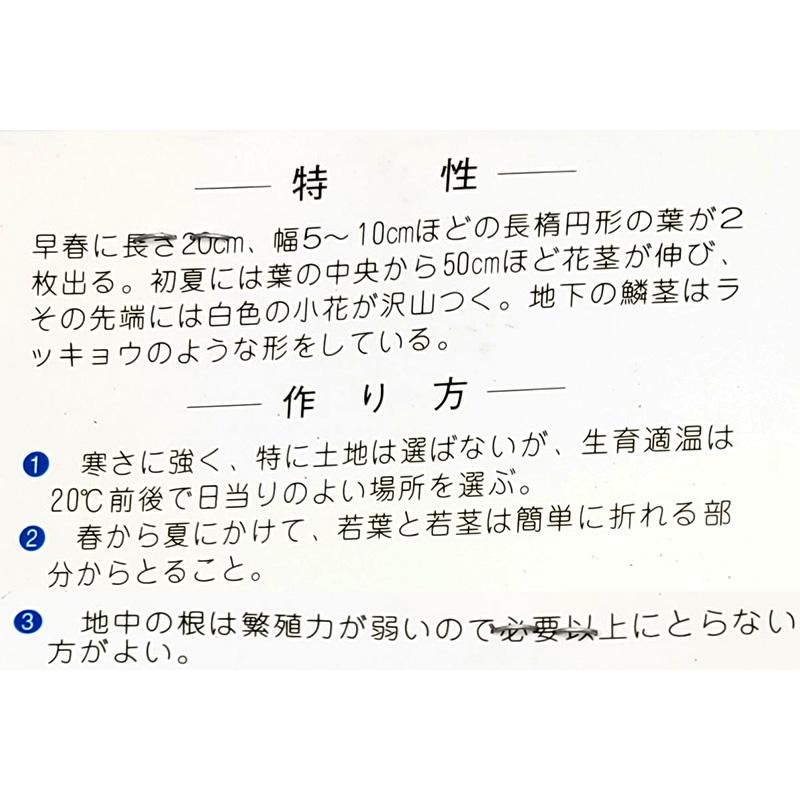 特 性
早春に長さ20cm、幅5～10cmほどの長楕円形の葉が2
枚出る。初夏には葉の中央から50cmほど花茎が伸び、
その先端には白色の小花が沢山つく。地下の鱗茎はラ
ッキョウのような形をしている。
作 り 方
❶ 寒さに強く、特に土地は選ばないが、生育適温は
20℃前後で日当りのよい場所を選ぶ。
❷ 春から夏にかけて、若葉と若茎は簡単に折れる部
分からとること。
❸ 地中の根は繁殖力が弱いので必要以上にとらない
方がよい。